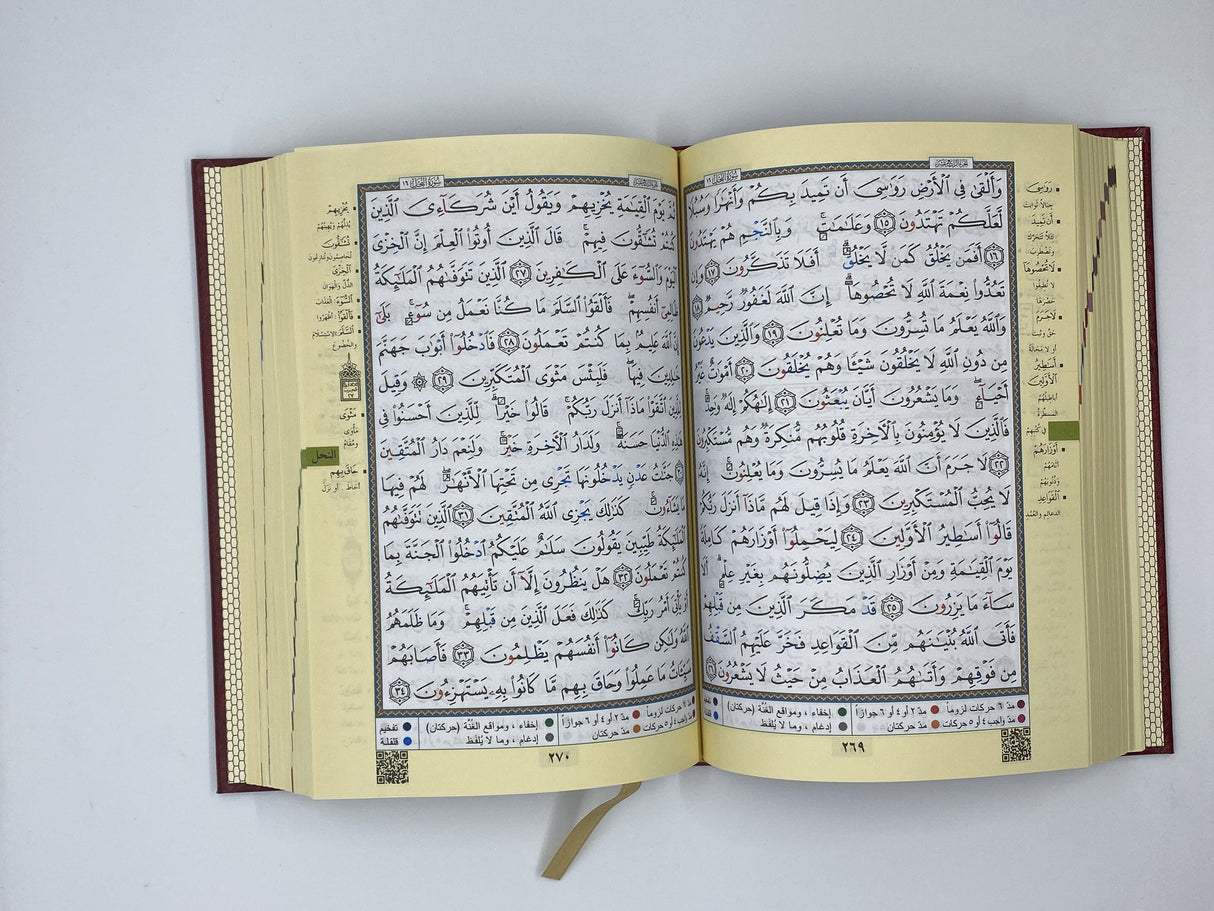 سُورَةُ النَّحْلِ ١٦
وَأَلْقَىٰ فِي الْأَرْضِ رَوَاسِيَ أَن تَمِيدَ بِكُمْ وَأَنْهَارًا وَسُبُلًا
لَّعَلَّكُمْ تَهْتَدُونَ ﴿١٥﴾ وَعَلَامَاتٍ ۚ وَبِالنَّجْمِ هُمْ يَهْتَدُونَ
﴿١٦﴾ أَفَمَن يَخْلُقُ كَمَن لَّا يَخْلُقُ ۗ أَفَلَا تَذَكَّرُونَ ﴿١٧﴾ وَإِن
تَعُدُّوا نِعْمَةَ اللَّهِ لَا تُحْصُوهَا ۗ إِنَّ اللَّهَ لَغَفُورٌ رَّحِيمٌ ﴿١٨﴾
وَاللَّهُ يَعْلَمُ مَا تُسِرُّونَ وَمَا تُعْلِنُونَ ﴿١٩﴾ وَالَّذِينَ يَدْعُونَ
مِن دُونِ اللَّهِ لَا يَخْلُقُونَ شَيْئًا وَهُمْ يُخْلَقُونَ ﴿٢٠﴾ أَمْوَاتٌ غَيْرُ
أَحْيَاءٍ ۖ وَمَا يَشْعُرُونَ أَيَّانَ يُبْعَثُونَ ﴿٢١﴾ إِلَٰهُكُمْ إِلَٰهٌ وَاحِدٌ ۚ
فَالَّذِينَ لَا يُؤْمِنُونَ بِالْآخِرَةِ قُلُوبُهُم مُّنكِرَةٌ وَهُم مُّسْتَكْبِرُونَ
﴿٢٢﴾ لَا جَرَمَ أَنَّ اللَّهَ يَعْلَمُ مَا يُسِرُّونَ وَمَا يُعْلِنُونَ ۚ إِنَّهُ
لَا يُحِبُّ الْمُسْتَكْبِرِينَ ﴿٢٣﴾ وَإِذَا قِيلَ لَهُم مَّاذَا أَنزَلَ رَبُّكُمْ
قَالُوا أَسَاطِيرُ الْأَوَّلِينَ ﴿٢٤﴾ لِيَحْمِلُوا أَوْزَارَهُمْ كَامِلَةً
يَوْمَ الْقِيَامَةِ وَمِنْ أَوْزَارِ الَّذِينَ يُضِلُّونَهُم بِغَيْرِ عِلْمٍ ۗ أَلَا
سَاءَ مَا يَزِرُونَ ﴿٢٥﴾ قَدْ مَكَرَ الَّذِينَ مِن قَبْلِهِمْ
فَأَتَى اللَّهُ بُنْيَانَهُم مِّنَ الْقَوَاعِدِ فَخَرَّ عَلَيْهِمُ السَّقْفُ
مِن فَوْقِهِمْ وَأَتَاهُمُ الْعَذَابُ مِنْ حَيْثُ لَا يَشْعُرُونَ ﴿٢٦﴾
رَوَاسِيَ
جبالاً ثوابت
أَن تَمِيدَ
لئلا تتحرك
وتضطرب
لَا تُحْصُوهَا
لا تطيقوا
حصرها
لَا جَرَمَ
حق وثبت
أو لا محالة
أَسَاطِيرُ
الْأَوَّلِينَ
أباطيلهم
المسطرة
في كتبهم
أَوْزَارَهُمْ
آثامهم
وذنوبهم
الْقَوَاعِدِ
الدعائم والعمد
مدّ ٦ حركات لزوماً مدّ ٢ أو ٤ أو ٦ جوازاً إخفاء ، ومواقع الغُنَّة (حركتان) تفخيم
مدّ واجب ٤ أو ٥ حركات مدّ حركتان إدغام ، وما لا يُلفَظ قلقلة
٢٦٩
سُورَةُ النَّحْلِ ١٦
ثُمَّ يَوْمَ الْقِيَامَةِ يُخْزِيهِمْ وَيَقُولُ أَيْنَ شُرَكَائِيَ الَّذِينَ
كُنتُمْ تُشَاقُّونَ فِيهِمْ ۚ قَالَ الَّذِينَ أُوتُوا الْعِلْمَ إِنَّ الْخِزْيَ
الْيَوْمَ وَالسُّوءَ عَلَى الْكَافِرِينَ ﴿٢٧﴾ الَّذِينَ تَتَوَفَّاهُمُ الْمَلَائِكَةُ
ظَالِمِي أَنفُسِهِمْ ۖ فَأَلْقَوُا السَّلَمَ مَا كُنَّا نَعْمَلُ مِن سُوءٍ ۚ بَلَىٰ
إِنَّ اللَّهَ عَلِيمٌ بِمَا كُنتُمْ تَعْمَلُونَ ﴿٢٨﴾ فَادْخُلُوا أَبْوَابَ جَهَنَّمَ
خَالِدِينَ فِيهَا ۖ فَلَبِئْسَ مَثْوَى الْمُتَكَبِّرِينَ ﴿٢٩﴾ ۞ وَقِيلَ
لِلَّذِينَ اتَّقَوْا مَاذَا أَنزَلَ رَبُّكُمْ ۚ قَالُوا خَيْرًا ۗ لِّلَّذِينَ أَحْسَنُوا فِي
هَٰذِهِ الدُّنْيَا حَسَنَةٌ ۚ وَلَدَارُ الْآخِرَةِ خَيْرٌ ۚ وَلَنِعْمَ دَارُ الْمُتَّقِينَ
﴿٣٠﴾ جَنَّاتُ عَدْنٍ يَدْخُلُونَهَا تَجْرِي مِن تَحْتِهَا الْأَنْهَارُ ۖ لَهُمْ فِيهَا
مَا يَشَاءُونَ ۚ كَذَٰلِكَ يَجْزِي اللَّهُ الْمُتَّقِينَ ﴿٣١﴾ الَّذِينَ تَتَوَفَّاهُمُ
الْمَلَائِكَةُ طَيِّبِينَ يَقُولُونَ سَلَامٌ عَلَيْكُمُ ادْخُلُوا الْجَنَّةَ بِمَا
كُنتُمْ تَعْمَلُونَ ﴿٣٢﴾ هَلْ يَنظُرُونَ إِلَّا أَن تَأْتِيَهُمُ الْمَلَائِكَةُ
أَوْ يَأْتِيَ أَمْرُ رَبِّكَ ۚ كَذَٰلِكَ فَعَلَ الَّذِينَ مِن قَبْلِهِمْ ۚ وَمَا ظَلَمَهُمُ
اللَّهُ وَلَٰكِن كَانُوا أَنفُسَهُمْ يَظْلِمُونَ ﴿٣٣﴾ فَأَصَابَهُمْ
سَيِّئَاتُ مَا عَمِلُوا وَحَاقَ بِهِم مَّا كَانُوا بِهِ يَسْتَهْزِئُونَ ﴿٣٤﴾
يُخْزِيهِمْ
يذلهم ويهينهم
تُشَاقُّونَ
تخاصمون وتنازعون
الْخِزْيَ
الذل والهوان
السُّوءَ: العذاب
فَأَلْقَوُا: أظهروا
السَّلَمَ: الاستسلام
والخضوع
مَثْوَى
مأوى
ومقام
النحل
حَاقَ بِهِم
أحاط . أو نزل
مدّ ٦ حركات لزوماً مدّ ٢ أو ٤ أو ٦ جوازاً إخفاء ، ومواقع الغُنَّة (حركتان) تفخيم
مدّ واجب ٤ أو ٥ حركات مدّ حركتان إدغام ، وما لا يُلفَظ قلقلة
٢٧٠